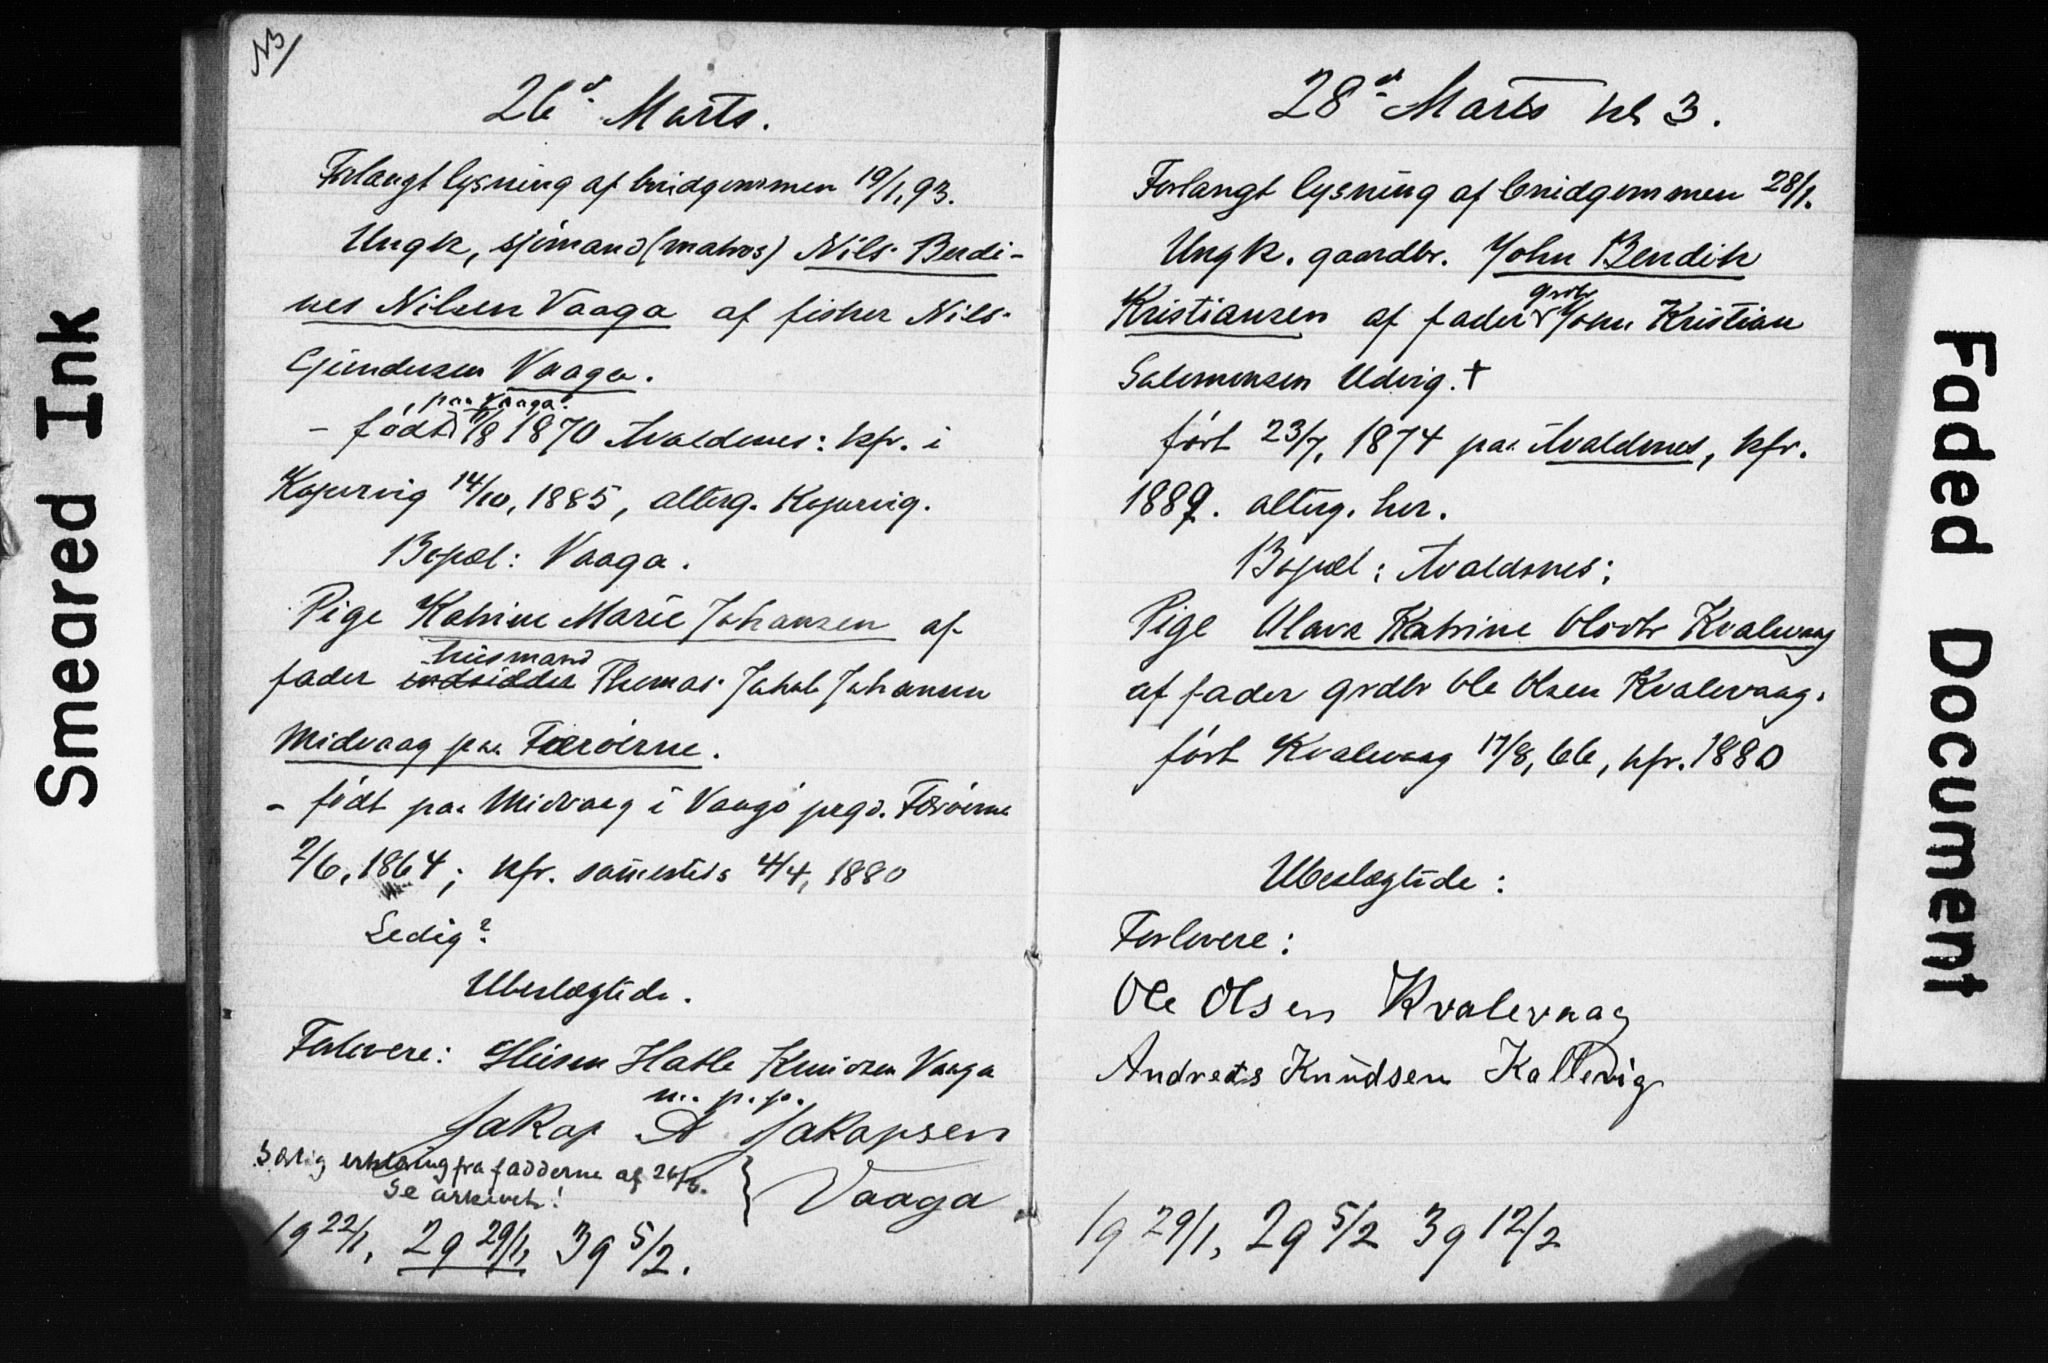 Smeared Ink
NB/
26d. Marts.
Forlangt lysning af bruidgommen 19/1, 93.
Ungk, sjømand (matros) Nils Berdi-
nes Nilsen Vaaga af fisker Nils
Gjundersen Vaaga.
paa Vaaga.
– født /8 1870 Avaldsnes: kfr. i
Kopervig 14/10, 1885, alterg. Kopervig.
Bopæl: Vaaga.
Pige Katrine Marie Johansen af
husmand
fader indsidder Thomas Jakob Johansen
Midvaag paa Færøerne.
– født paa Midvaag i Vaagø prgd. Færøerne
2/6, 1864; kfr. samesteds 4/4, 1880
Ledig?
Ubeslægtede.
Forlovere: Hatle Knudsen Vaaga
m. p. p.
Jakop A Jakopsen
Vaaga
Særlig erklæring fra fadderne af 26/3.
Se arkivet!
1g 22/1, 2g 29/1, 3g 5/2.
28d. Marts kl 3.
Forlangt lysning af bruidgommen 28/1.
Ungk. gaardbr. John Bendik
grdbr
Kristiansen af fader John Kristian
Salomonsen Udvig. †
født 23/7, 1874 paa Avaldsnes, kfr.
1889. alterg. her.
Bopæl: Avaldsnes;
Pige Olava Katrine Olsdtr Kvalevaag
af fader grdbr Ole Olsen Kvalevaag.
født Kvalevaag 17/8, 66, kfr. 1880
Ubeslægtede:
Forlovere:
Ole Olsen Kvalevaag
Andreas Knudsen Kallevig
1g 29/1, 2g 5/2 3g 12/2
Faded Document